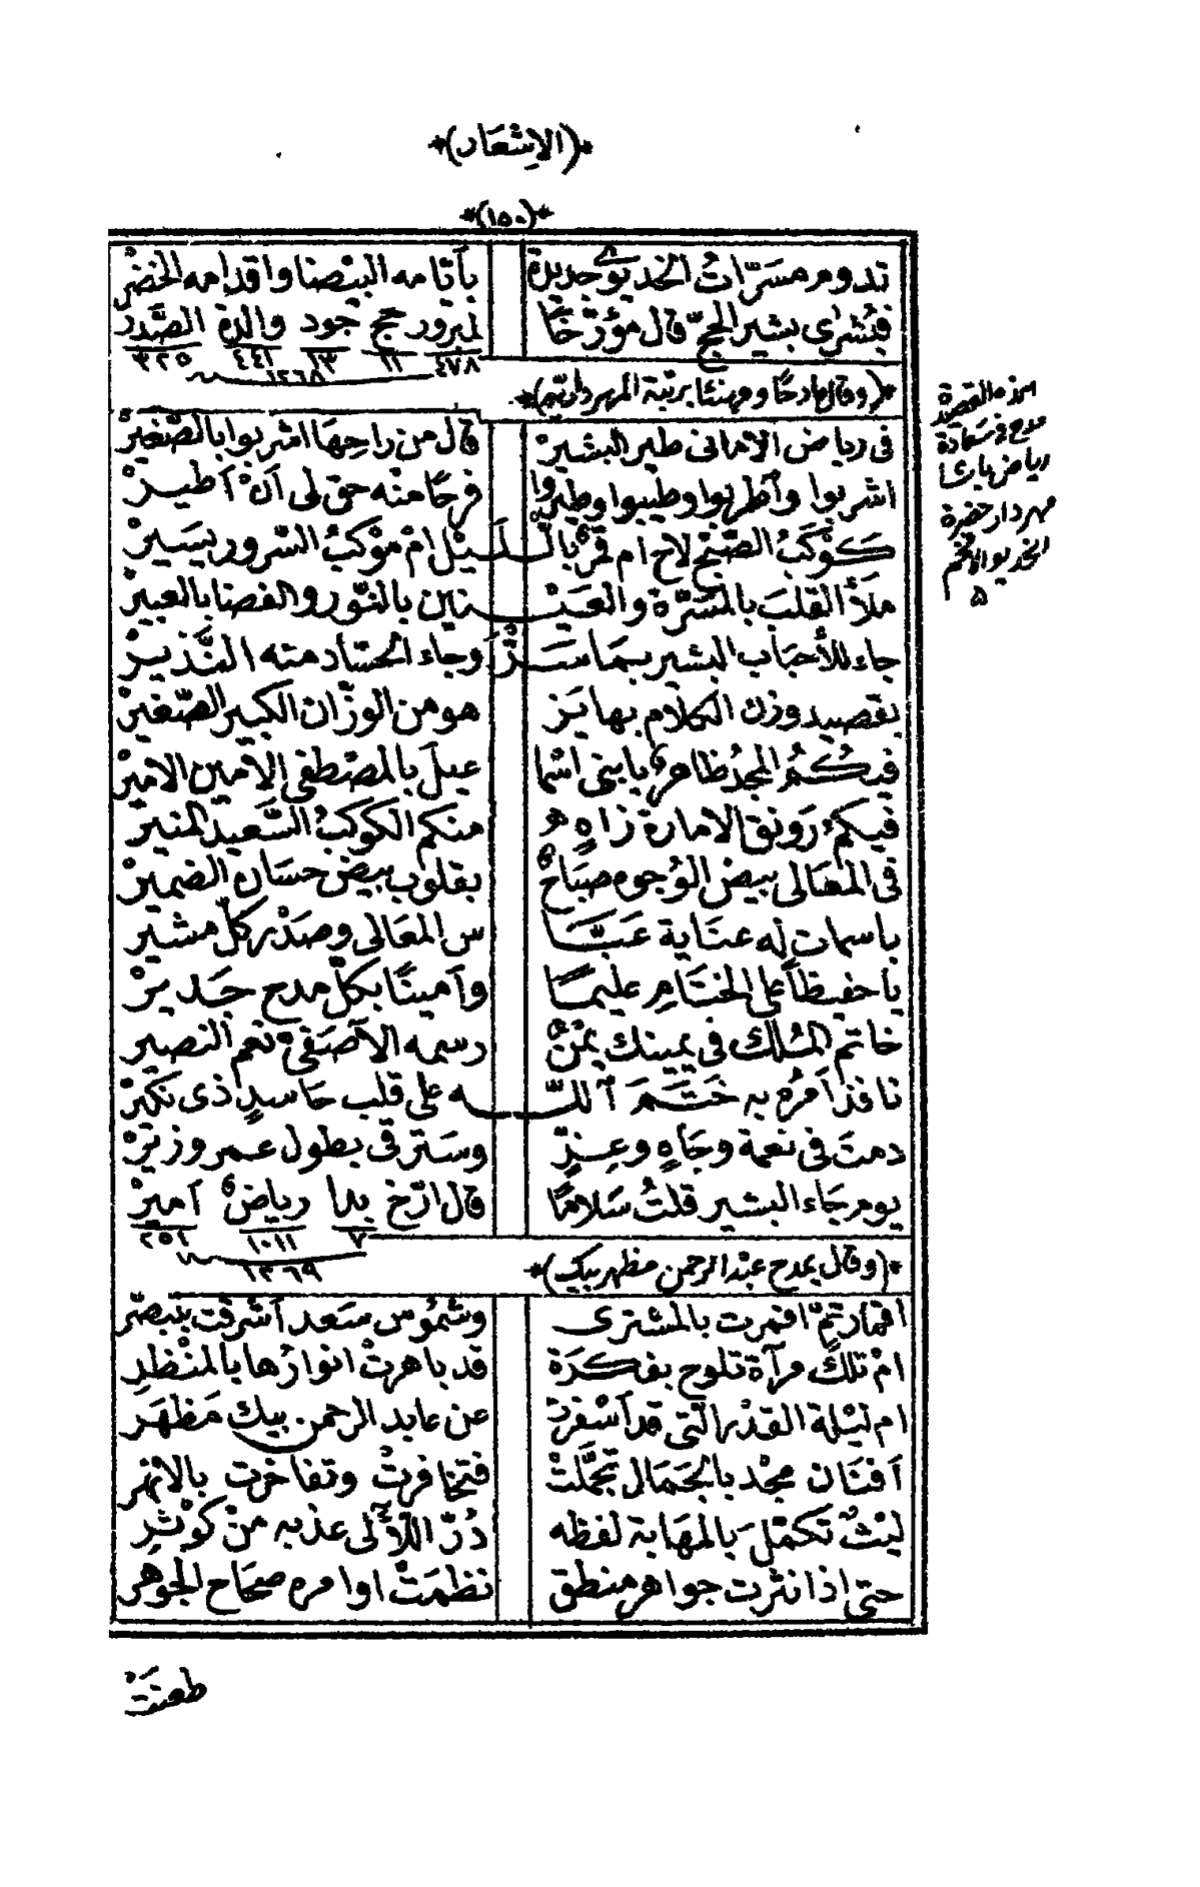 *(الاشعار)*
*(١٥٠)*
تدوم مسرّاتُ الخديوي جديدة بأيامه البيضا واقدامه الخضرْ
فبُشرى بشير الحجّ قال مؤرّخًا لمبرور حج جود والدة الصَّدر
٤٧٨ ١١ ١٣ ٤٤١ ٣٢٥
١٢٦٨
*(وقال مادحًا ومهنئا برتبة المهردارية)*
فى رياض الامانى طير البشيرْ قال من راحها اشربوا بالصَّغيرْ
اشربوا وأطربوا وطيبوا وطيروا فرحًا منه حق لى أنْ أطيرْ
كوْكبُ الصّبح لاح ام قمرٌ بالليْل امْ موْكبُ السّرور يسيرْ
ملأ القلبَ بالمسَرَّة والعَيْنين بالنّور والفضا بالعبيرْ
جاء للأحباب البشير بما سَرَّ وجاء الحسّاد منه النَّذيرْ
بقصيد وزن الكلام بها يَز هو من الوزّان الكبير الصَّغيرْ
فيكُمُ المجدُ ظاهرٌ يا بنى اسْما عيلَ بالمصْطفى الأمين الاميرْ
فيكمُ رَونق الامارة زاهٍ منكم الكوكبُ السَّعيد المنير
فى المعَالى بيض الوُجوه صباحٌ بقلوب بيض حسَان الضميرْ
يا سمات له عنَاية عَبَّا س المعَالى وصَدْر كلّ مشير
يا حفيظاً على الختَام عليمًا وأمينًا بكلّ مدح جَديرْ
خاتم المُلك فى يمينك يمْنٌ رسمه الآصَفىّ نعم النصير
نافذ أمرُه به خَتَمَ اللّه على قلب حَاسدٍ ذى نكيرْ
دمتَ فى نعمة وجَاهٍ وعِزٍّ وسَترقى بطول عمر وزيرْ
يوم جَاء البشير قلتُ سَلامًا قال ارّخ بدا رياضٌ أميرْ
٧ ١٠١١ ٢٥١
١٢٦٩
*(وقال يمدح عبْد الرحمن مظهر بيك)*
اقمار تمّ اقمرت بالمشترى وشمُوس سَعد أشرقت بتبصّر
امْ تلك مرآة تلوح بفكرَة قد باهرتْ انوارُها بالمنْظر
ام ليْلة القدْر الّتى قد أسْفرتْ عن عابد الرحمن بيك مَظهَر
أفنَان مجْد بالجَمَال تجمَّلتْ فتخافرتْ وتفاخرت بالانهر
ليْثٌ تكمّلَ بالمهَابة لفظه دُرّ اللآلى عذبه منْ كوْثر
حتى اذا نثرت جواهر منطق نظمَتْ اوامره صحَاح الجوهر
طعنَتْ
هذه القصيدة
مدح فى سَعادة
رياض باى
مهردار حضرة
الخديو الافخم